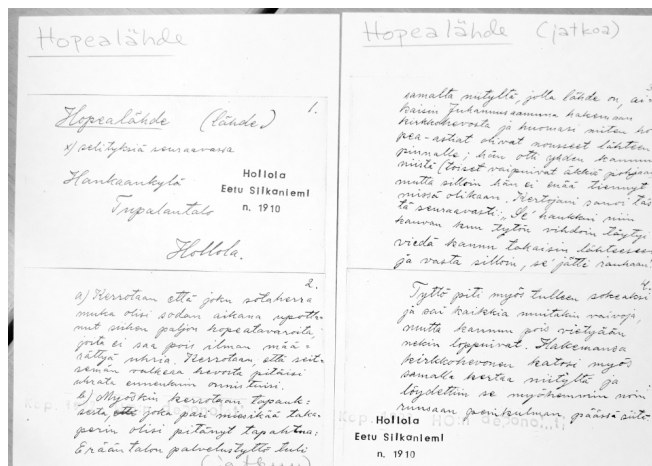 Hopealähde
1.
Hopealähde (lähde)
x) selityksiä seuraavassa
Hankaankylä
Tupalantalo
Hollola.
Hollola
Eetu Silkaniemi
n. 1910
2.
a) Kerrotaan että joku sotaherra
muka olisi sodan aikana upotta-
nut siihen paljon hopeatavaroita,
joita ei saa pois ilman mää-
rättyä uhria. Kerrotaan että seit-
semän valkeaa hevosta pitäisi
uhrata ennenkuin onnistuisi.
b) Myöskin kerrotaan tapauk-
sesta, joka pari miesikää taka-
perin olisi pitänyt tapahtua:
Erään talon palvelustyttö tuli
(jatkuu)
Hopealähde (jatkoa)
samalta niityltä, jolla lähde on,
Juhannusaamuna hakemaan
kirkkohevosta ja huomasi miten ho-
pea-astiat olivat nousseet lähteen
pinnalle; hän otti yhden kannun
niistä (toiset vaipuivat äkkiä pohjaan
mutta silloin hän ei enää tiennyt
missä olikaan. Kertojani sanoi
tä seuraavasti: "Se' hankkui niin
kauvan kun tytön vihdoin täytyi
viedä kannu takaisin lähteeseen
ja vasta silloin, se' jätti rauhaan
4.
Tyttö piti myös tulleen sokeaksi
ja sai kaikkia muitakin vaivoja,
mutta kannun pois vietyään
nekin loppuivat. Hakemansa
kirkkohevonen katosi myös
samalla kertaa niityltä ja
löydettiin se myöhemmin noin
runsaan penikulman päässä siitä
Hollola
Eetu Silkaniemi
n. 1910